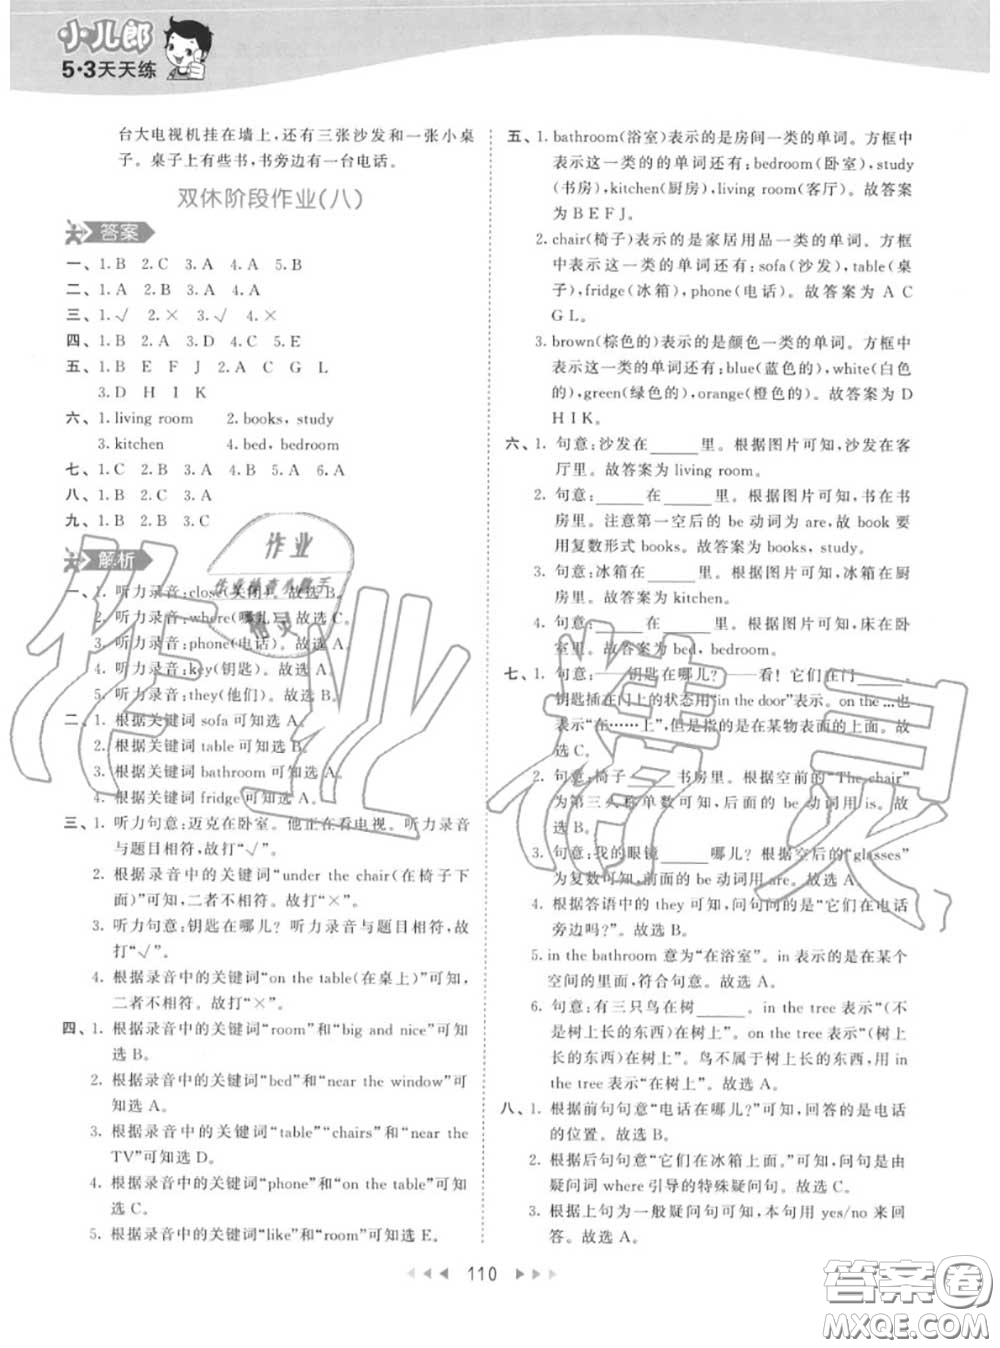 小儿郎
5·3天天练
台大电视机挂在墙上，还有三张沙发和一张小桌
子。桌子上有些书，书旁边有一台电话。
双休阶段作业(八)
答案
一、1. B 2. C 3. A 4. A 5. B
二、1. A 2. B 3. A 4. A
三、1. √ 2. × 3. √ 4. ×
四、1. B 2. A 3. D 4. C 5. E
五、1. B E F J 2. A C G L
3. D H I K
六、1. living room 2. books, study
3. kitchen 4. bed, bedroom
七、1. C 2. B 3. A 4. B 5. A 6. A
八、1. B 2. C 3. A
九、1. B 2. B 3. C
解析
一、1. 听力录音:close(关闭)。故选 B。
2. 听力录音:where(哪儿)。故选 C。
3. 听力录音:phone(电话)。故选 A。
4. 听力录音:key(钥匙)。故选 A。
5. 听力录音:they(他们)。故选 B。
二、1. 根据关键词 sofa 可知选 A。
2. 根据关键词 table 可知选 B。
3. 根据关键词 bathroom 可知选 A。
4. 根据关键词 fridge 可知选 A。
三、1. 听力句意:迈克在卧室。他正在看电视。听力录音
与题目相符,故打“√”。
2. 根据录音中的关键词“under the chair(在椅子下
面)”可知,二者不相符。故打“×”。
3. 听力句意:钥匙在哪儿?听力录音与题目相符,故
打“√”。
4. 根据录音中的关键词“on the table(在桌上)”可知,
二者不相符。故打“×”。
四、1. 根据录音中的关键词“room”和“big and nice”可知
选 B。
2. 根据录音中的关键词“bed”和“near the window”可
知选 A。
3. 根据录音中的关键词“table”“chairs”和“near the
TV”可知选 D。
4. 根据录音中的关键词“phone”和“on the table”可知
选 C。
5. 根据录音中的关键词“like”和“room”可知选 E。
五、1. bathroom(浴室)表示的是房间一类的单词。方框中
表示这一类的的单词还有:bedroom(卧室),study
(书房),kitchen(厨房),living room(客厅)。故答案
为 B E F J。
2. chair(椅子)表示的是家居用品一类的单词。方框
中表示这一类的单词还有:sofa(沙发),table(桌
子),fridge(冰箱),phone(电话)。故答案为 A C
G L。
3. brown(棕色的)表示的是颜色一类的单词。方框中
表示这一类的单词还有:blue(蓝色的),white(白色
的),green(绿色的),orange(橙色的)。故答案为 D
H I K。
六、1. 句意:沙发在______里。根据图片可知,沙发在客
厅里。故答案为 living room。
2. 句意:______在______里。根据图片可知,书在书
房里。注意第一空后的 be 动词为 are,故 book 要
用复数形式 books。故答案为 books, study。
3. 句意:冰箱在______里。根据图片可知,冰箱在厨
房里。故答案为 kitchen。
4. 句意:______在______里。根据图片可知,床在卧
室里。故答案为 bed, bedroom。
七、1. 句意:——钥匙在哪儿?——看!它们在门______。
钥匙插在门上的状态用“in the door”表示。on the …也
表示“在……上”,但是指的是在某物表面的上面。故
选 C。
2. 句意:椅子______书房里。根据空前的“The chair”
为第三人称单数可知,后面的 be 动词用 is。故
选 B。
3. 句意:我的眼镜______哪儿?根据空后的“glasses”
为复数可知,前面的 be 动词用 are。故选 A。
4. 根据答语中的 they 可知,问句问的是“它们在电话
旁边吗?”。故选 B。
5. in the bathroom 意为“在浴室”。in表示的是在某个
空间的里面,符合句意。故选 A。
6. 句意:有三只鸟在树______。in the tree 表示“(不
是树上长的东西)在树上”。on the tree 表示“(树上
长的东西)在树上”。鸟不属于树上长的东西,用 in
the tree 表示“在树上”。故选 A。
八、1. 根据前句句意“电话在哪儿?”可知,回答的是电话
的位置。故选 B。
2. 根据后句句意“它们在冰箱上面。”可知,问句是由
疑问词 where 引导的特殊疑问句。故选 C。
3. 根据上句为一般疑问句可知,本句用 yes/no 来回
答。故选 A。
110
作业
作业检查小助手
精灵
作业精灵
答案圈
MXQE.COM